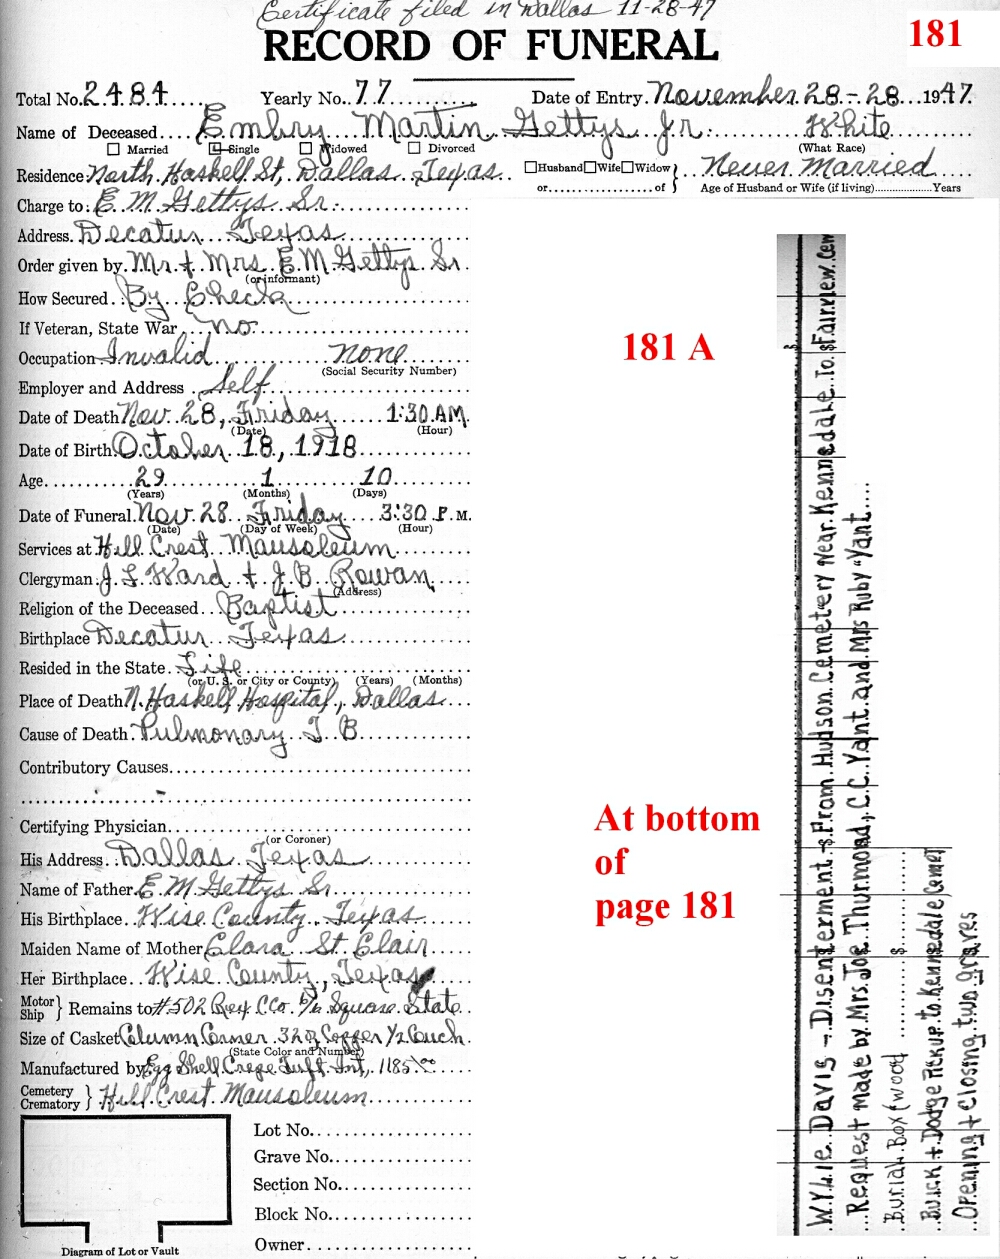 Certificate filed in Dallas 11-28-47
RECORD OF FUNERAL
181
Total No. 2484 Yearly No. 77 Date of Entry November 28-28 1947
Name of Deceased Embry Martin Gettys Jr. White
Married Single Widowed Divorced (What Race)
Residence North Haskell St, Dallas Texas Husband Wife Widow } Never Married
or of Age of Husband or Wife (if living) Years
Charge to: E. M. Gettys Sr.
Address Decatur Texas
Order given by Mr. + Mrs. E M Gettys Sr.
(or informant)
How Secured By Check
If Veteran, State War no
Occupation Invalid none
(Social Security Number)
Employer and Address Self
Date of Death Nov. 28, Friday 1:30 A.M.
(Date) (Hour)
Date of Birth October 18, 1918
Age 29 1 10
(Years) (Months) (Days)
Date of Funeral Nov. 28 Friday 3:30 P.M.
(Date) (Day of Week) (Hour)
Services at Hill Crest Mausoleum
Clergyman J. L. Ward + J. B. Rowan
(Address)
Religion of the Deceased Baptist
Birthplace Decatur Texas
Resided in the State Life
(or U. S. or City or County) (Years) (Months)
Place of Death N. Haskell Hospital, Dallas
Cause of Death Pulmonary T B
Contributory Causes
Certifying Physician
(or Coroner)
His Address Dallas Texas
Name of Father E. M. Gettys Sr
His Birthplace Wise County, Texas
Maiden Name of Mother Clara St. Clair
Her Birthplace Wise County, Texas
Motor Ship } Remains to #502 CCo. Square State
Size of Casket Column Corner 32 oz Copper 1/2 Couch
(State Color and Number)
Manufactured by Egg Shell Crepe Tuft Int, 1185.00
Cemetery Crematory } Hill Crest Mausoleum
Lot No.
Grave No.
Section No.
Block No.
Owner
Diagram of Lot or Vault
181 A
At bottom
of
page 181
Wylie Davis - Disenterment - From Hudson Cemetery Near Kennedale To Fairview Cem
Request made by Mrs Joe Thurmond, C.C. Yant and Mrs Ruby Yant
Burial Box (wood $
Buick + Dodge Pickup to Kennedale Cemet
Opening + Closing two graves